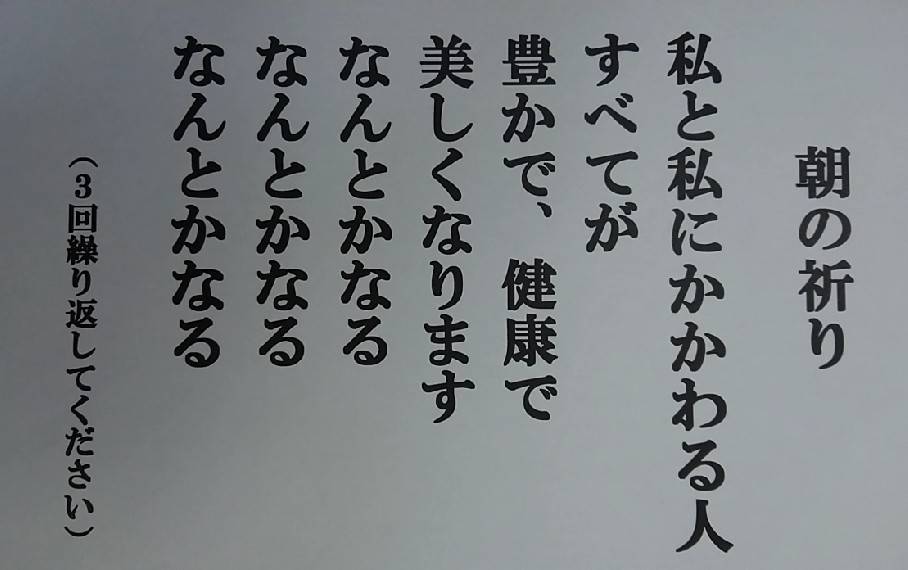 朝の祈り
私と私にかかわる人
すべてが
豊かで、健康で
美しくなります
なんとかなる
なんとかなる
なんとかなる
（3回繰り返してください）